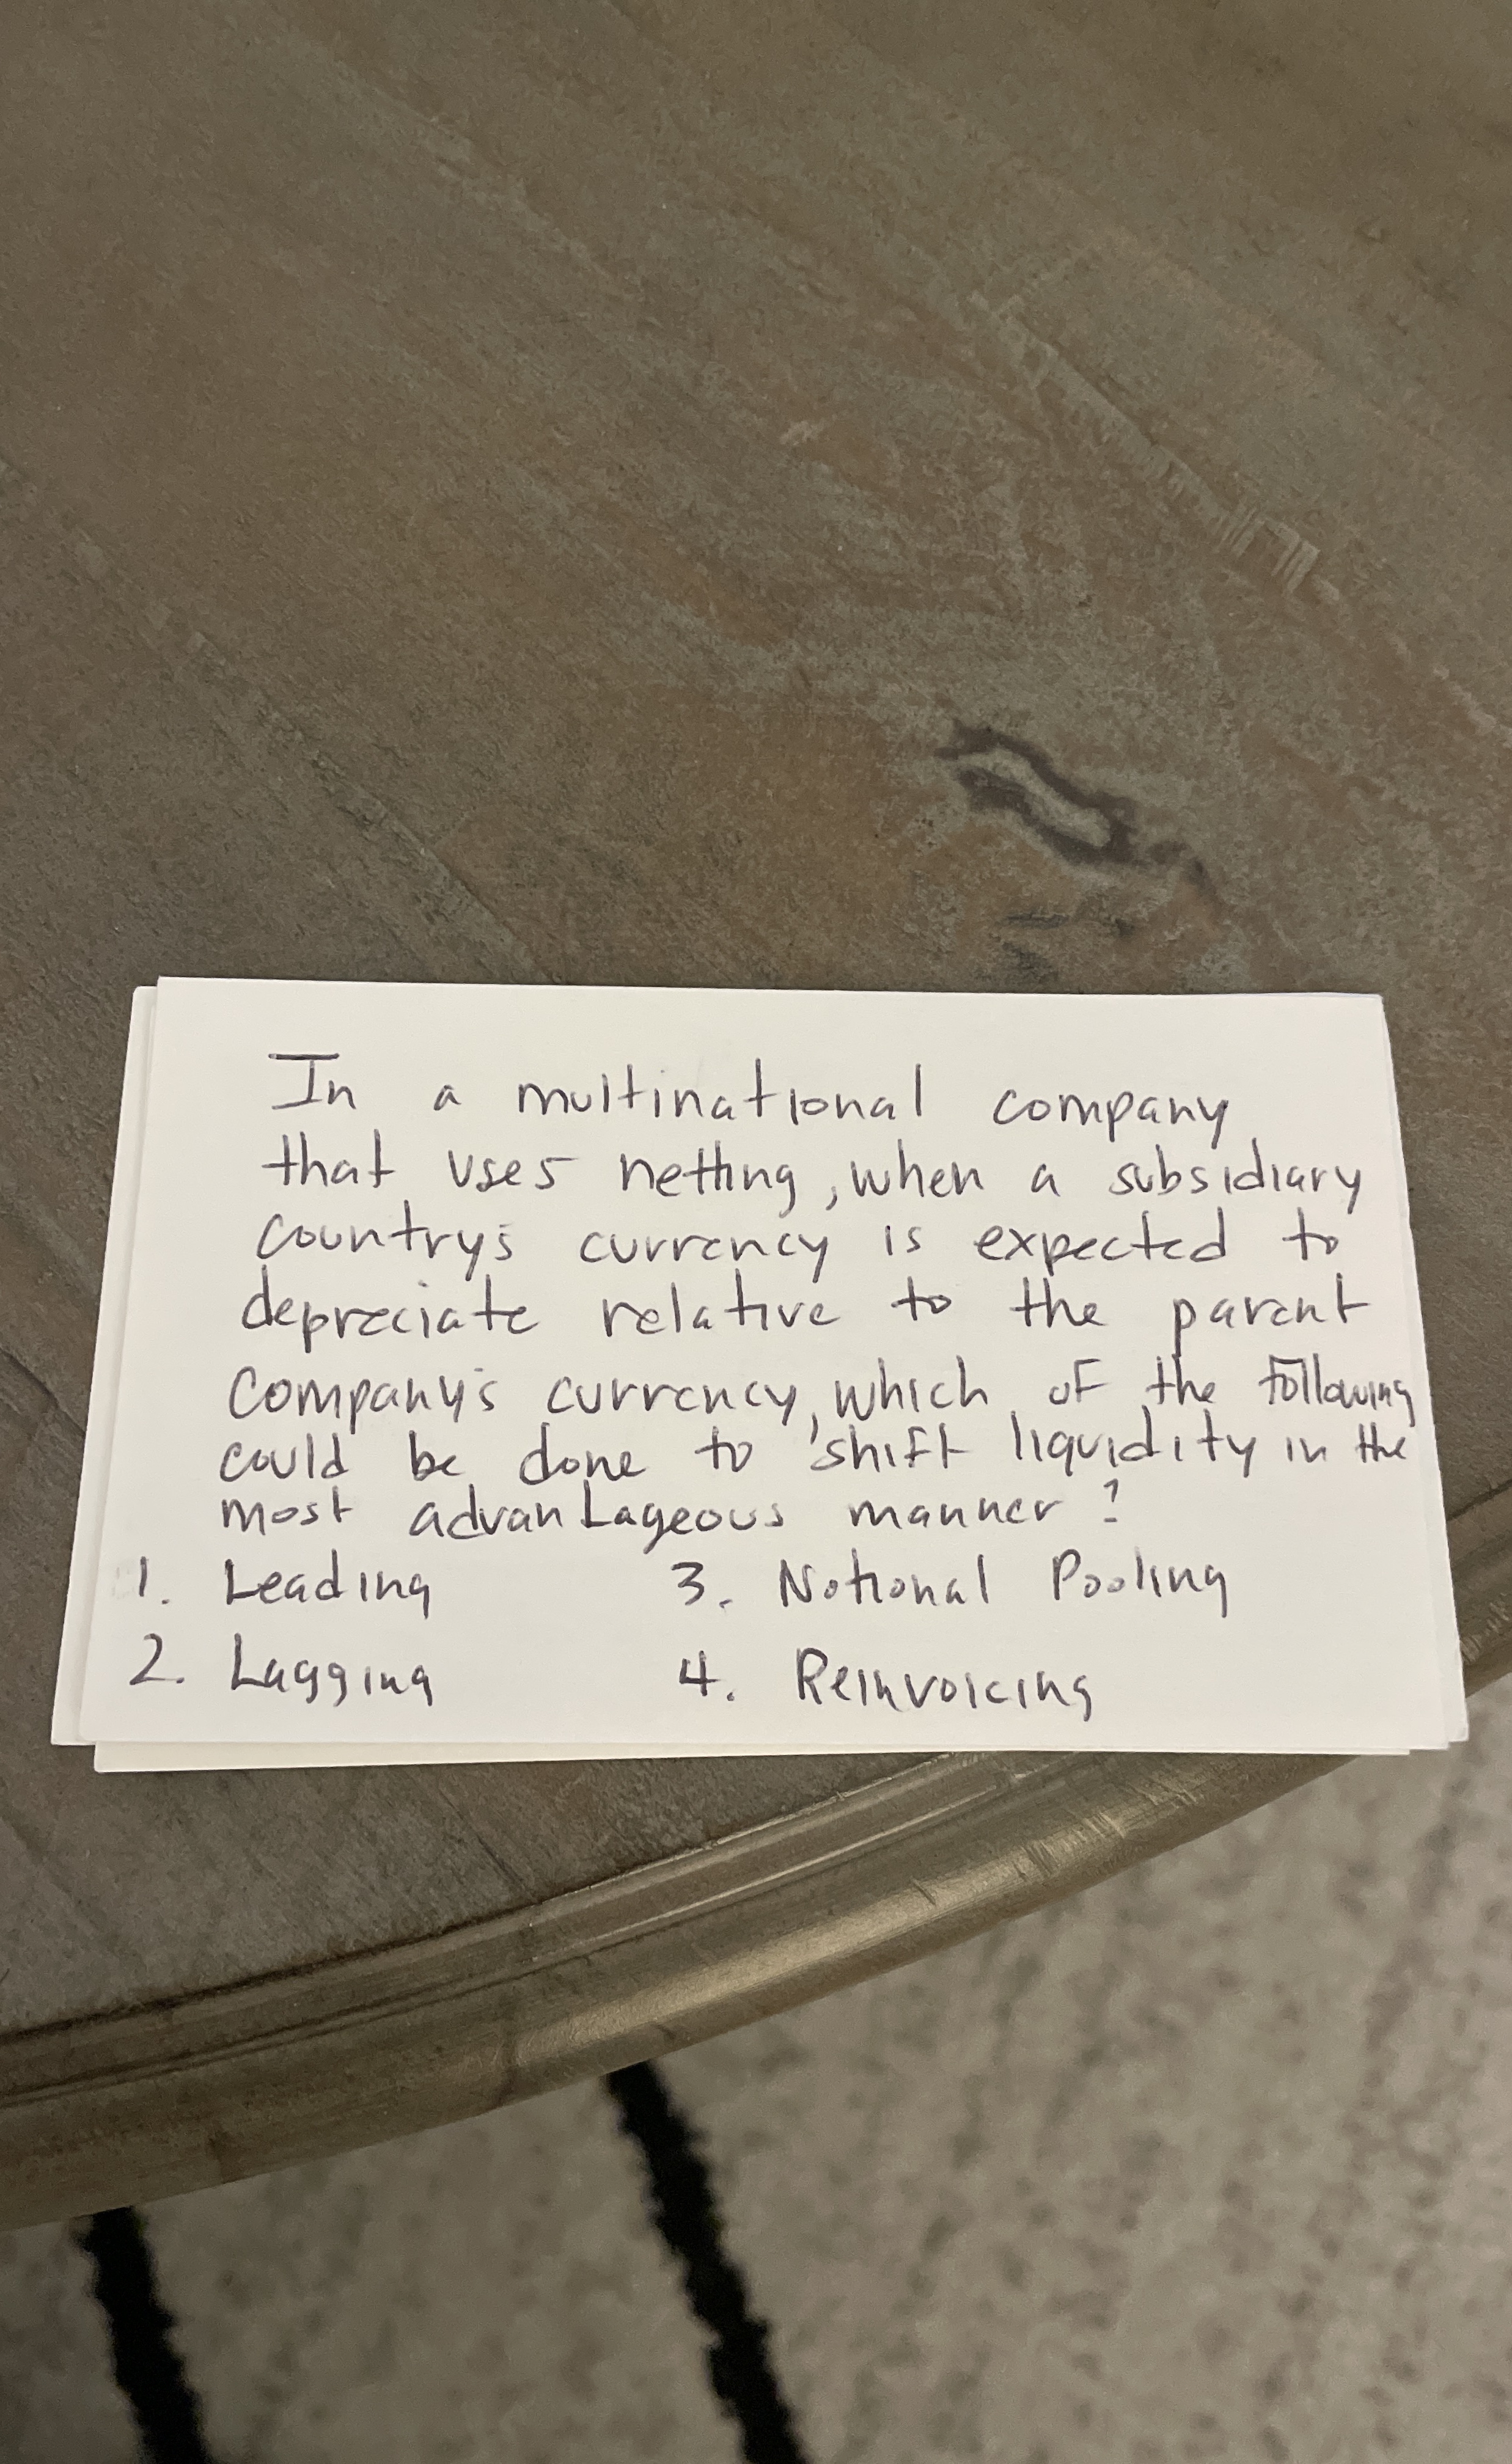 In a multinational company
that uses netting, when a subsidiary
country's currency is expected to
depreciate relative to the parent
company's currency, which of the following
could be done to shift liquidity in the
most advantageous manner?
1. Leading 3. Notional Pooling
2. Lagging 4. Reinvoicing